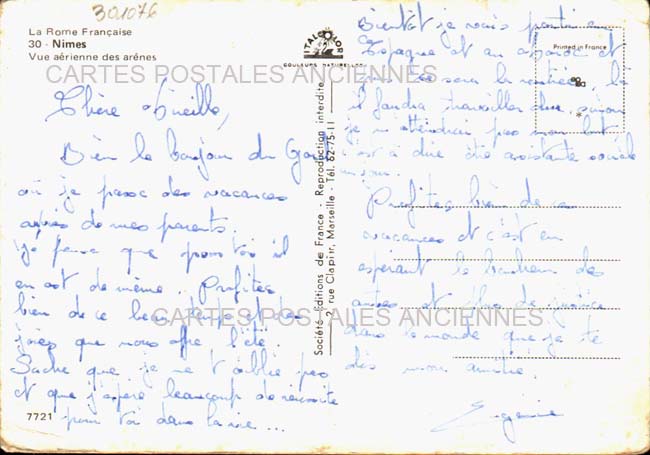 301076
La Rome Française
30 - Nimes
Vue aérienne des arénes
ITALCOLOR
COULEURS NATURELLES
Printed in France
CARTES POSTALES ANCIENNES
Chère Mireille,
Bien le bonjour du Gard
où je passe des vacances
auprès de mes parents.
Je pense que pour toi il
en est de même. Profites
bien de ce beau temps et des
joies que nous offre l'été.
Sache que je ne t'oublie pas
et que j'espère beaucoup de réussite
pour toi dans la vie ...
7721
Société Editions de France - Reproduction interdite
2, rue Clapier, Marseille - Tél. 62-75-11
Bientôt je vais partir en
Espagne et en août et
ce sera la rentrée, là
il faudra travailler dur, sinon
je n'atteindrai pas mon but
c'est à dire être assistante sociale
Profites bien de ces
vacances et c'est en
espérant le bonheur des
autres et plus de justice
dans le monde que je te
dis mon amitié.
Eugénie
CARTES POSTALES ANCIENNES